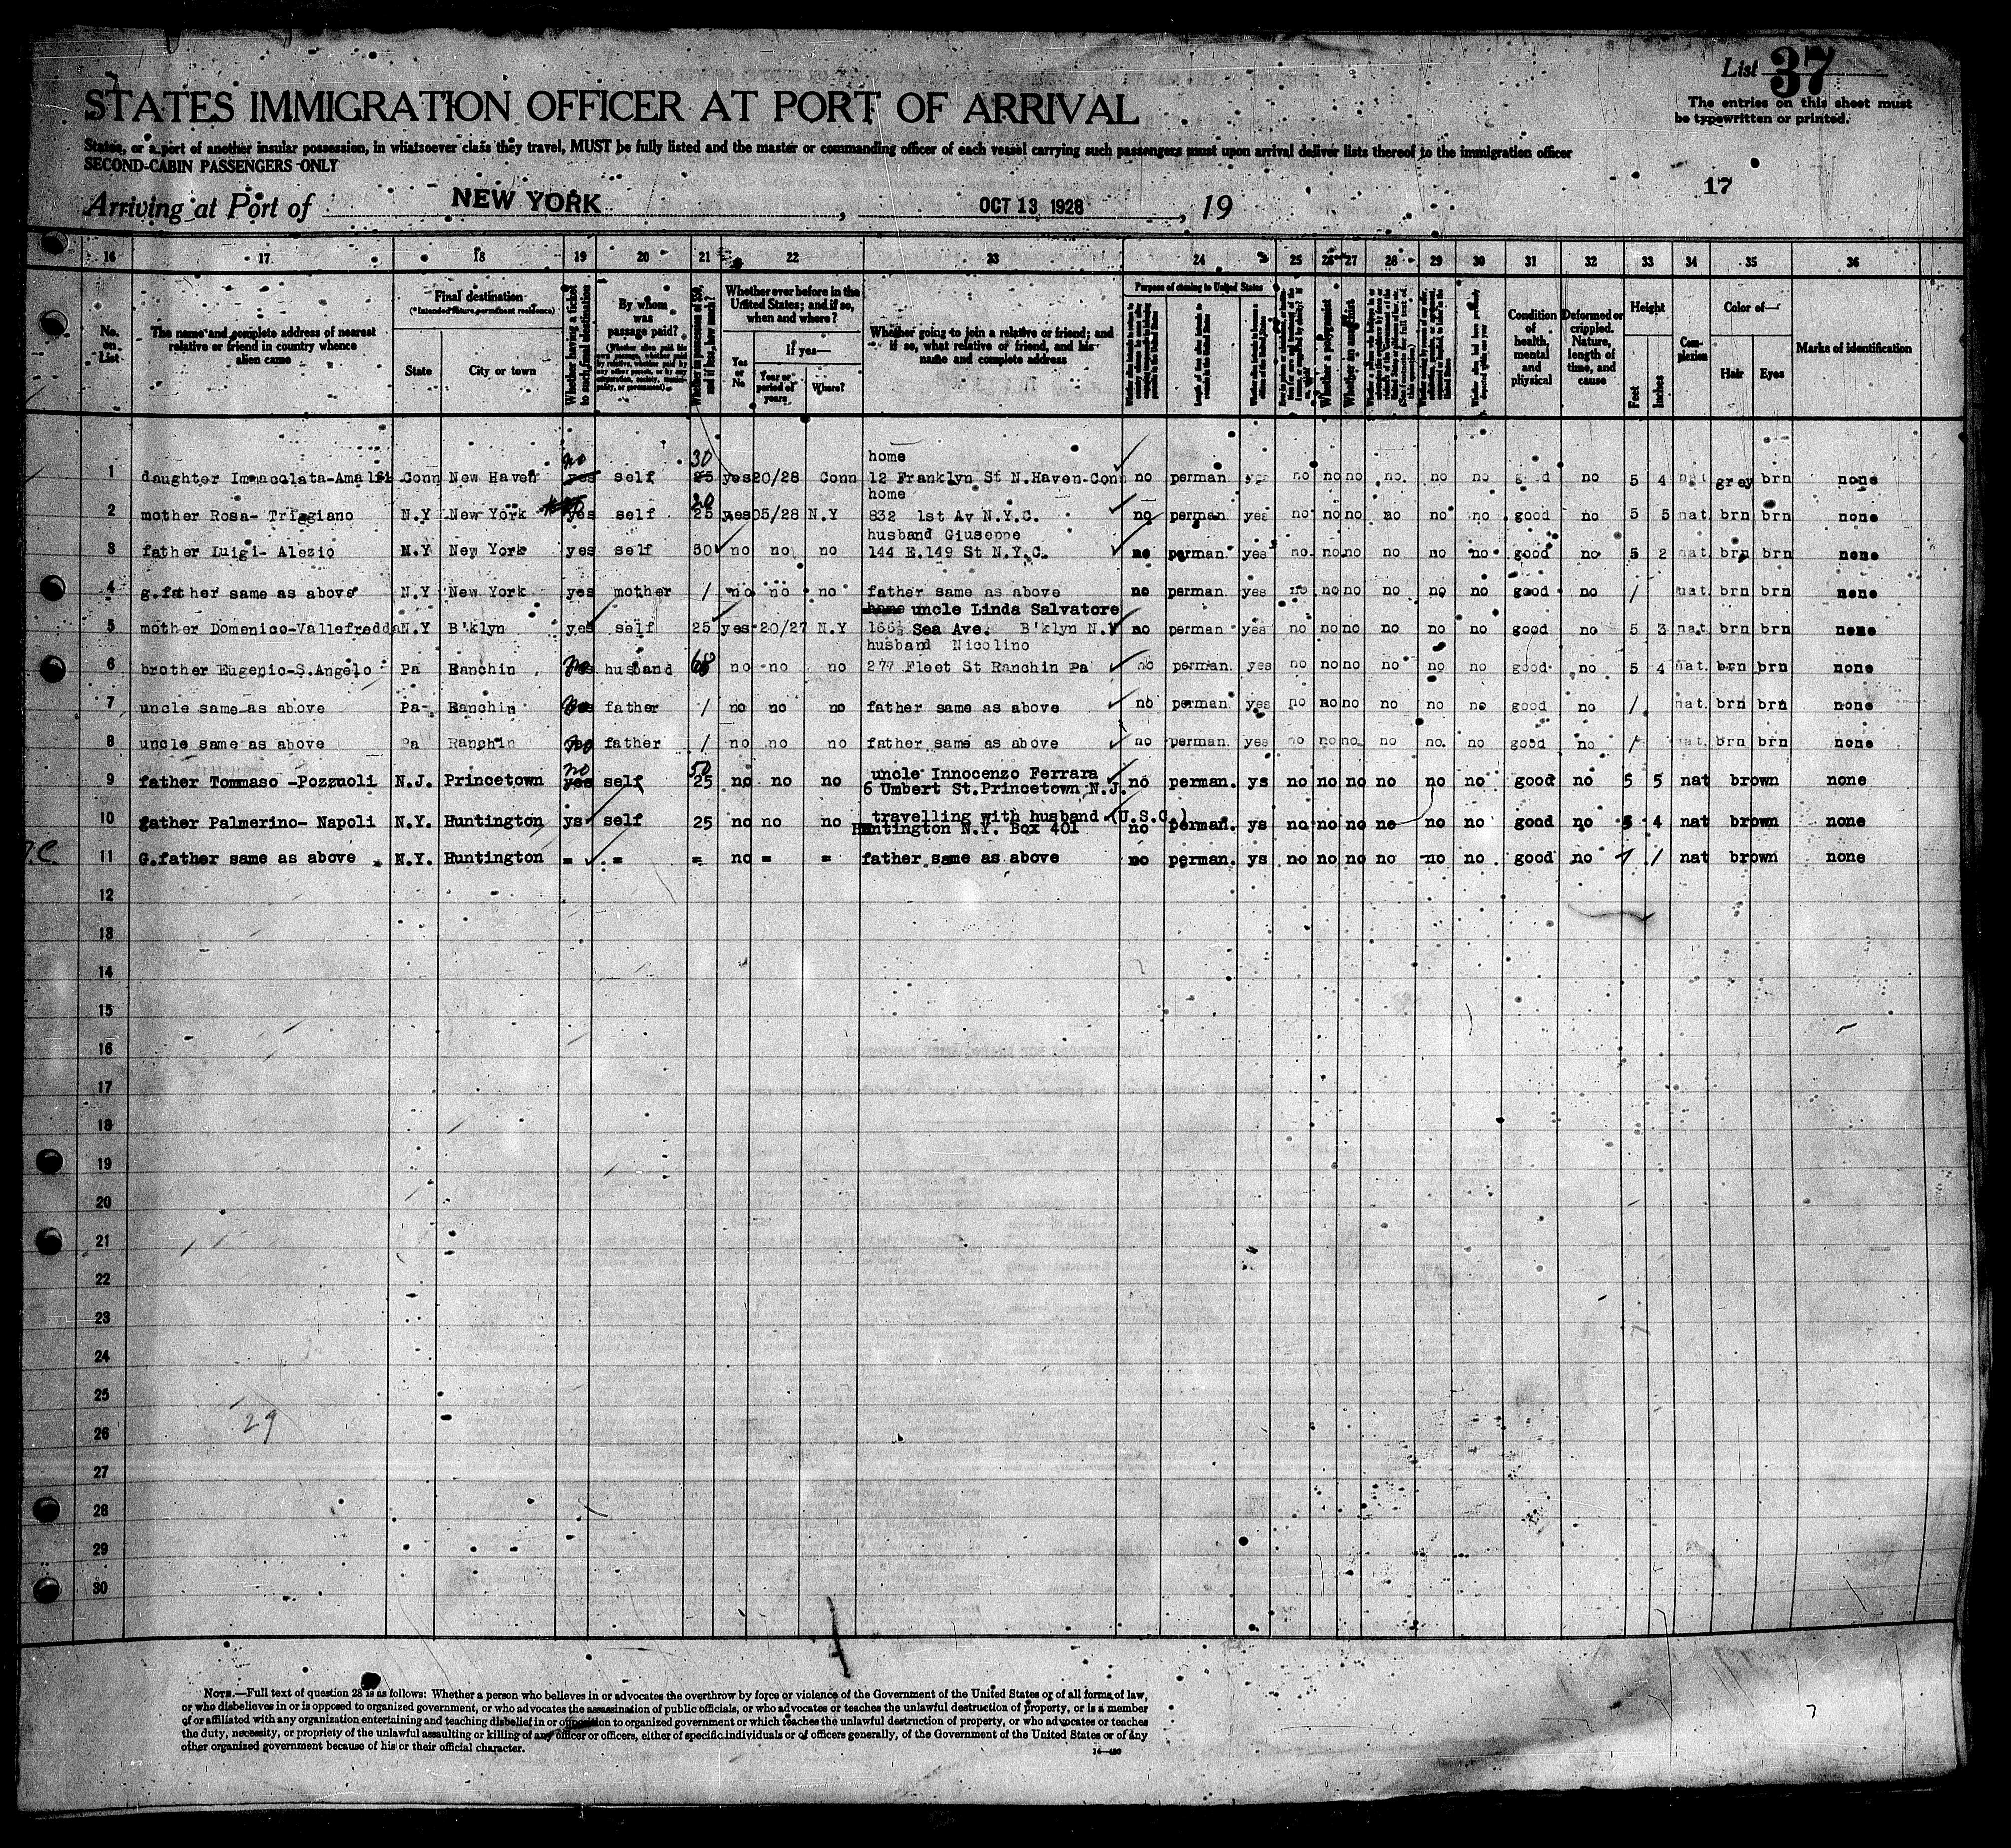 List 37
The entries on this sheet must
be typewritten or printed.
STATES IMMIGRATION OFFICER AT PORT OF ARRIVAL
States, or a port of another insular possession, in whatsoever class they travel, MUST be fully listed and the master or commanding officer of each vessel carrying such passengers must upon arrival deliver lists thereof to the immigration officer
SECOND-CABIN PASSENGERS ONLY
17
Arriving at Port of NEW YORK , OCT 13 1928 , 19
16 17 18 19 20 21 22 23 24 25 26 27 28 29 30 31 32 33 34 35 36
No. on List
The name and complete address of nearest relative or friend in country whence alien came
Final destination
(*Intended future permanent residence)
State City or town
Whether having a ticket to such final destination
By whom was passage paid?
(Whether alien paid his own passage, whether paid by relative, whether paid by any other person, or by any corporation, society, municipality, or government)
Whether in possession of $50, and if less, how much?
Whether ever before in the United States; and if so, when and where?
Yes or No
If yes—
Year or period of years
Where?
Whether going to join a relative or friend; and if so, what relative or friend, and his name and complete address
Purpose of coming to United States
Whether a polygamist
Whether an anarchist
Condition of health, mental and physical
Deformed or crippled. Nature, length of time, and cause
Height
Feet Inches
Complexion
Color of—
Hair Eyes
Marks of identification
no 30 home
1 daughter Immacolata-Amalfi Conn New Haven yes self 25 yes 20/28 Conn 12 Franklyn St N.Haven-Conn no perman. yes no no no no. no no good no 5 4 nat grey brn none
20 home
2 mother Rosa- Triggiano N.Y New York yes self 25 yes 05/28 N.Y 832 1st Av N.Y.C. no perman yes no no no no no no good no 5 5 nat. brn brn none
husband Giuseppe
3 father Luigi- Alezio N.Y New York yes self 50 no no no 144 E.149 St N.Y.C. no perman. yes no. no no no no no good no 5 2 nat. brn brn none
4 g.father same as above N.Y New York yes mother / no no no father same as above no perman. yes no no no no no no good no / nat. brn brn none
home uncle Linda Salvatore
5 mother Domenico-Vallefredda N.Y B'klyn yes self 25 yes 20/27 N.Y Sea Ave. B'klyn N.Y no perman yes no no no no no no good no 5 3 nat brn brn none
husband Nicolino
6 brother Eugenio-S.Angelo Pa Ranchin no husband 68 no no no 277 Fleet St Ranchin Pa no perman. yes no no no no no no good no 5 4 nat. brn brn none
7 uncle same as above Pa- Ranchin no father / no no no father same as above no perman. yes no no no no no no good no / nat. brn brn none
8 uncle same as above Pa Ranchin no father / no no no father same as above no perman. yes no no no no no. no good no / nat. brn brn none
no 50 uncle Innocenzo Ferrara
9 father Tommaso -Pozzuoli N.J. Princetown yes self 25 no no no 6 Umbert St.Princetown N.J. no perman. ys no no no no no no good no 5 5 nat brown none
travelling with husband (U.S.C.)
10 father Palmerino- Napoli N.Y. Huntington ys self 25 no no no Huntington N.Y. Box 401 no perman. ys no no no no no no good no 5 4 nat brown none
11 G.father same as above N.Y. Huntington = = = no = = father same as above no perman. ys no no no no no no good no / / nat brown none
12
13
14
15
16
17
18
19
20
21
22
23
24
25
29
26
27
28
29
30
NOTE.—Full text of question 28 is as follows: Whether a person who believes in or advocates the overthrow by force or violence of the Government of the United States or of all forms of law,
or who disbelieves in or is opposed to organized government, or who advocates the assassination of public officials, or who advocates or teaches the unlawful destruction of property, or is a member
of or affiliated with any organization entertaining and teaching disbelief in or opposition to organized government or which teaches the unlawful destruction of property, or who advocates or teaches
the duty, necessity, or propriety of the unlawful assaulting or killing of any officer or officers, either of specific individuals or of officers generally, of the Government of the United States or of any
other organized government because of his or their official character.
14—430